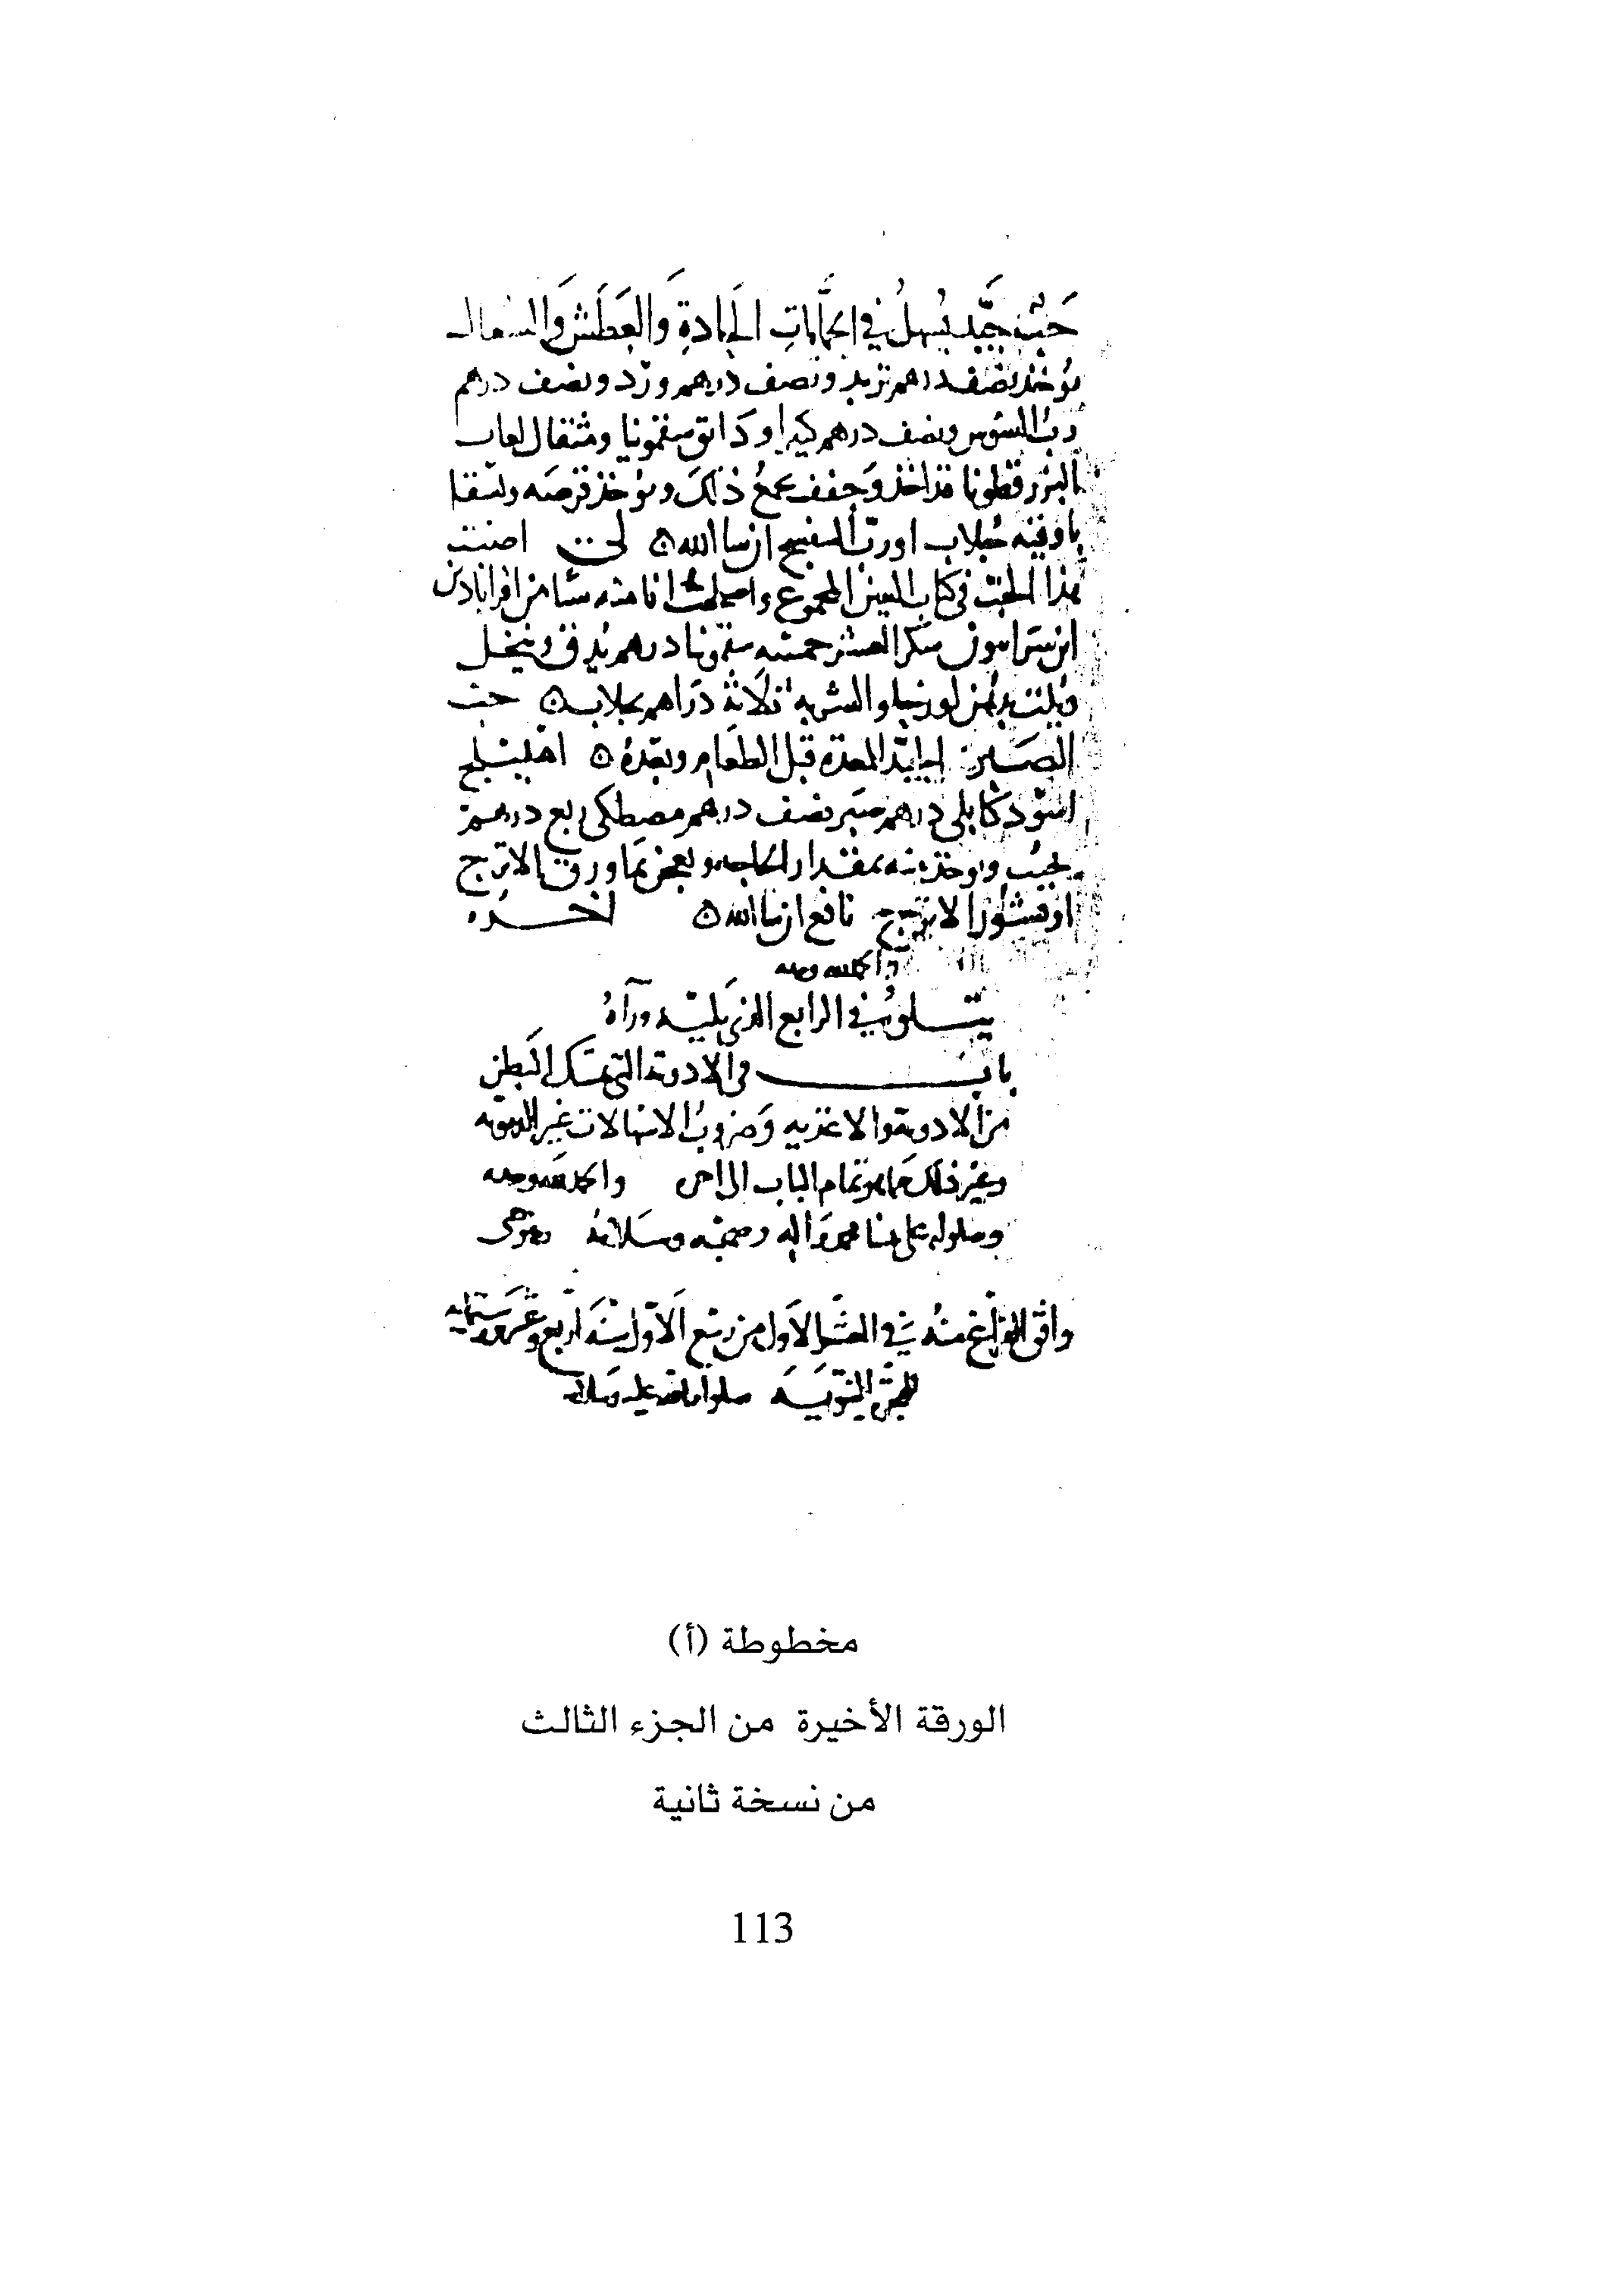 حَبّ جَيّد يُسهلُ في الحمَّاياتِ الحَادةِ وَالعَطَش وَالسعال
يوخذ نصف درهم تربد ونصف درهم ورد ونصف درهم
ربُ السوس ونصف درهم كثيرا ودَانق سقمونيا ومثقال لعاب
البزرقطونا قد اخذ وَجفف يجمعُ ذلك ويوخذ قرصه ويسقا
باوقيه جُلاب او ربّ البنفسج ان شا الله لي اصبت
هذا الحَبّ في كتاب المجموع واصلحتُ انا منه شيا من اقراباذين
ابن سَرابيون سكر العشر خمسه سقمونيا درهم يُدق وينخل
ويلت بدهن لوز حلو والشربه ثلَاثة دَرَاهم بجلاب حب
الصَبر الجيّد للمعدة قبل الطعَام وبَعدَهُ اهليلج
اسوَد كابلي درهم صَبر نصف درهم مصطكى ربع درهم
يحبّبُ ويوخذ منه بمقدار الحاجه ويعجن بما ورق الاترج
او قشُورا لاترج نافع ان شا الله اخره
والحمد لله وحده
يتلوُه في الرابع الذي يَليه ورآهُ
بابُ في الادوية التي تمسَك البَطن
من الادوية والاغذيه وَضروبُ الاسهالات غير الدمويه
وغير ذلك مما هو تمام الباب الى اخره والحمد لله وحده
وصلواته على نبينا محمد وَاله وصحبه وسَلامهُ
وافق الفراغ منهُ في العَشر الاَول من ربيع الاَوّل سَنَة اَربع وعشرين وستمايه
للهجرة النبَويَه صلوات الله عليه وسلامه
مخطوطة (أ)
الورقة الأخيرة من الجزء الثالث
من نسخة ثانية
113